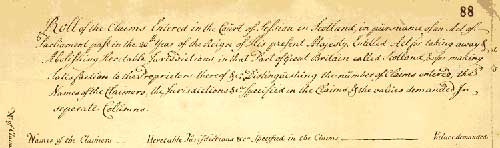 88
Roll of the Claims Entered in the Court of Session in Scotland, in pursuance of an Act of
Parliament past in the 20th Year of the Reign of His present Majesty, Entitled Act for taking away &
Abolishing Heretable Jurisdictions in that Part of Great Britain called Scotland, & for making
Satisfaction to the Proprietors thereof &c Distinguishing the number of Claims entered, the
Names of the Claimers, the Jurisdictions &c Specified in the Claims, & the values demanded in
seperate Columns.
Names of the Claimers Heretable Jurisdictions &ca Specified in the Claims Values demanded